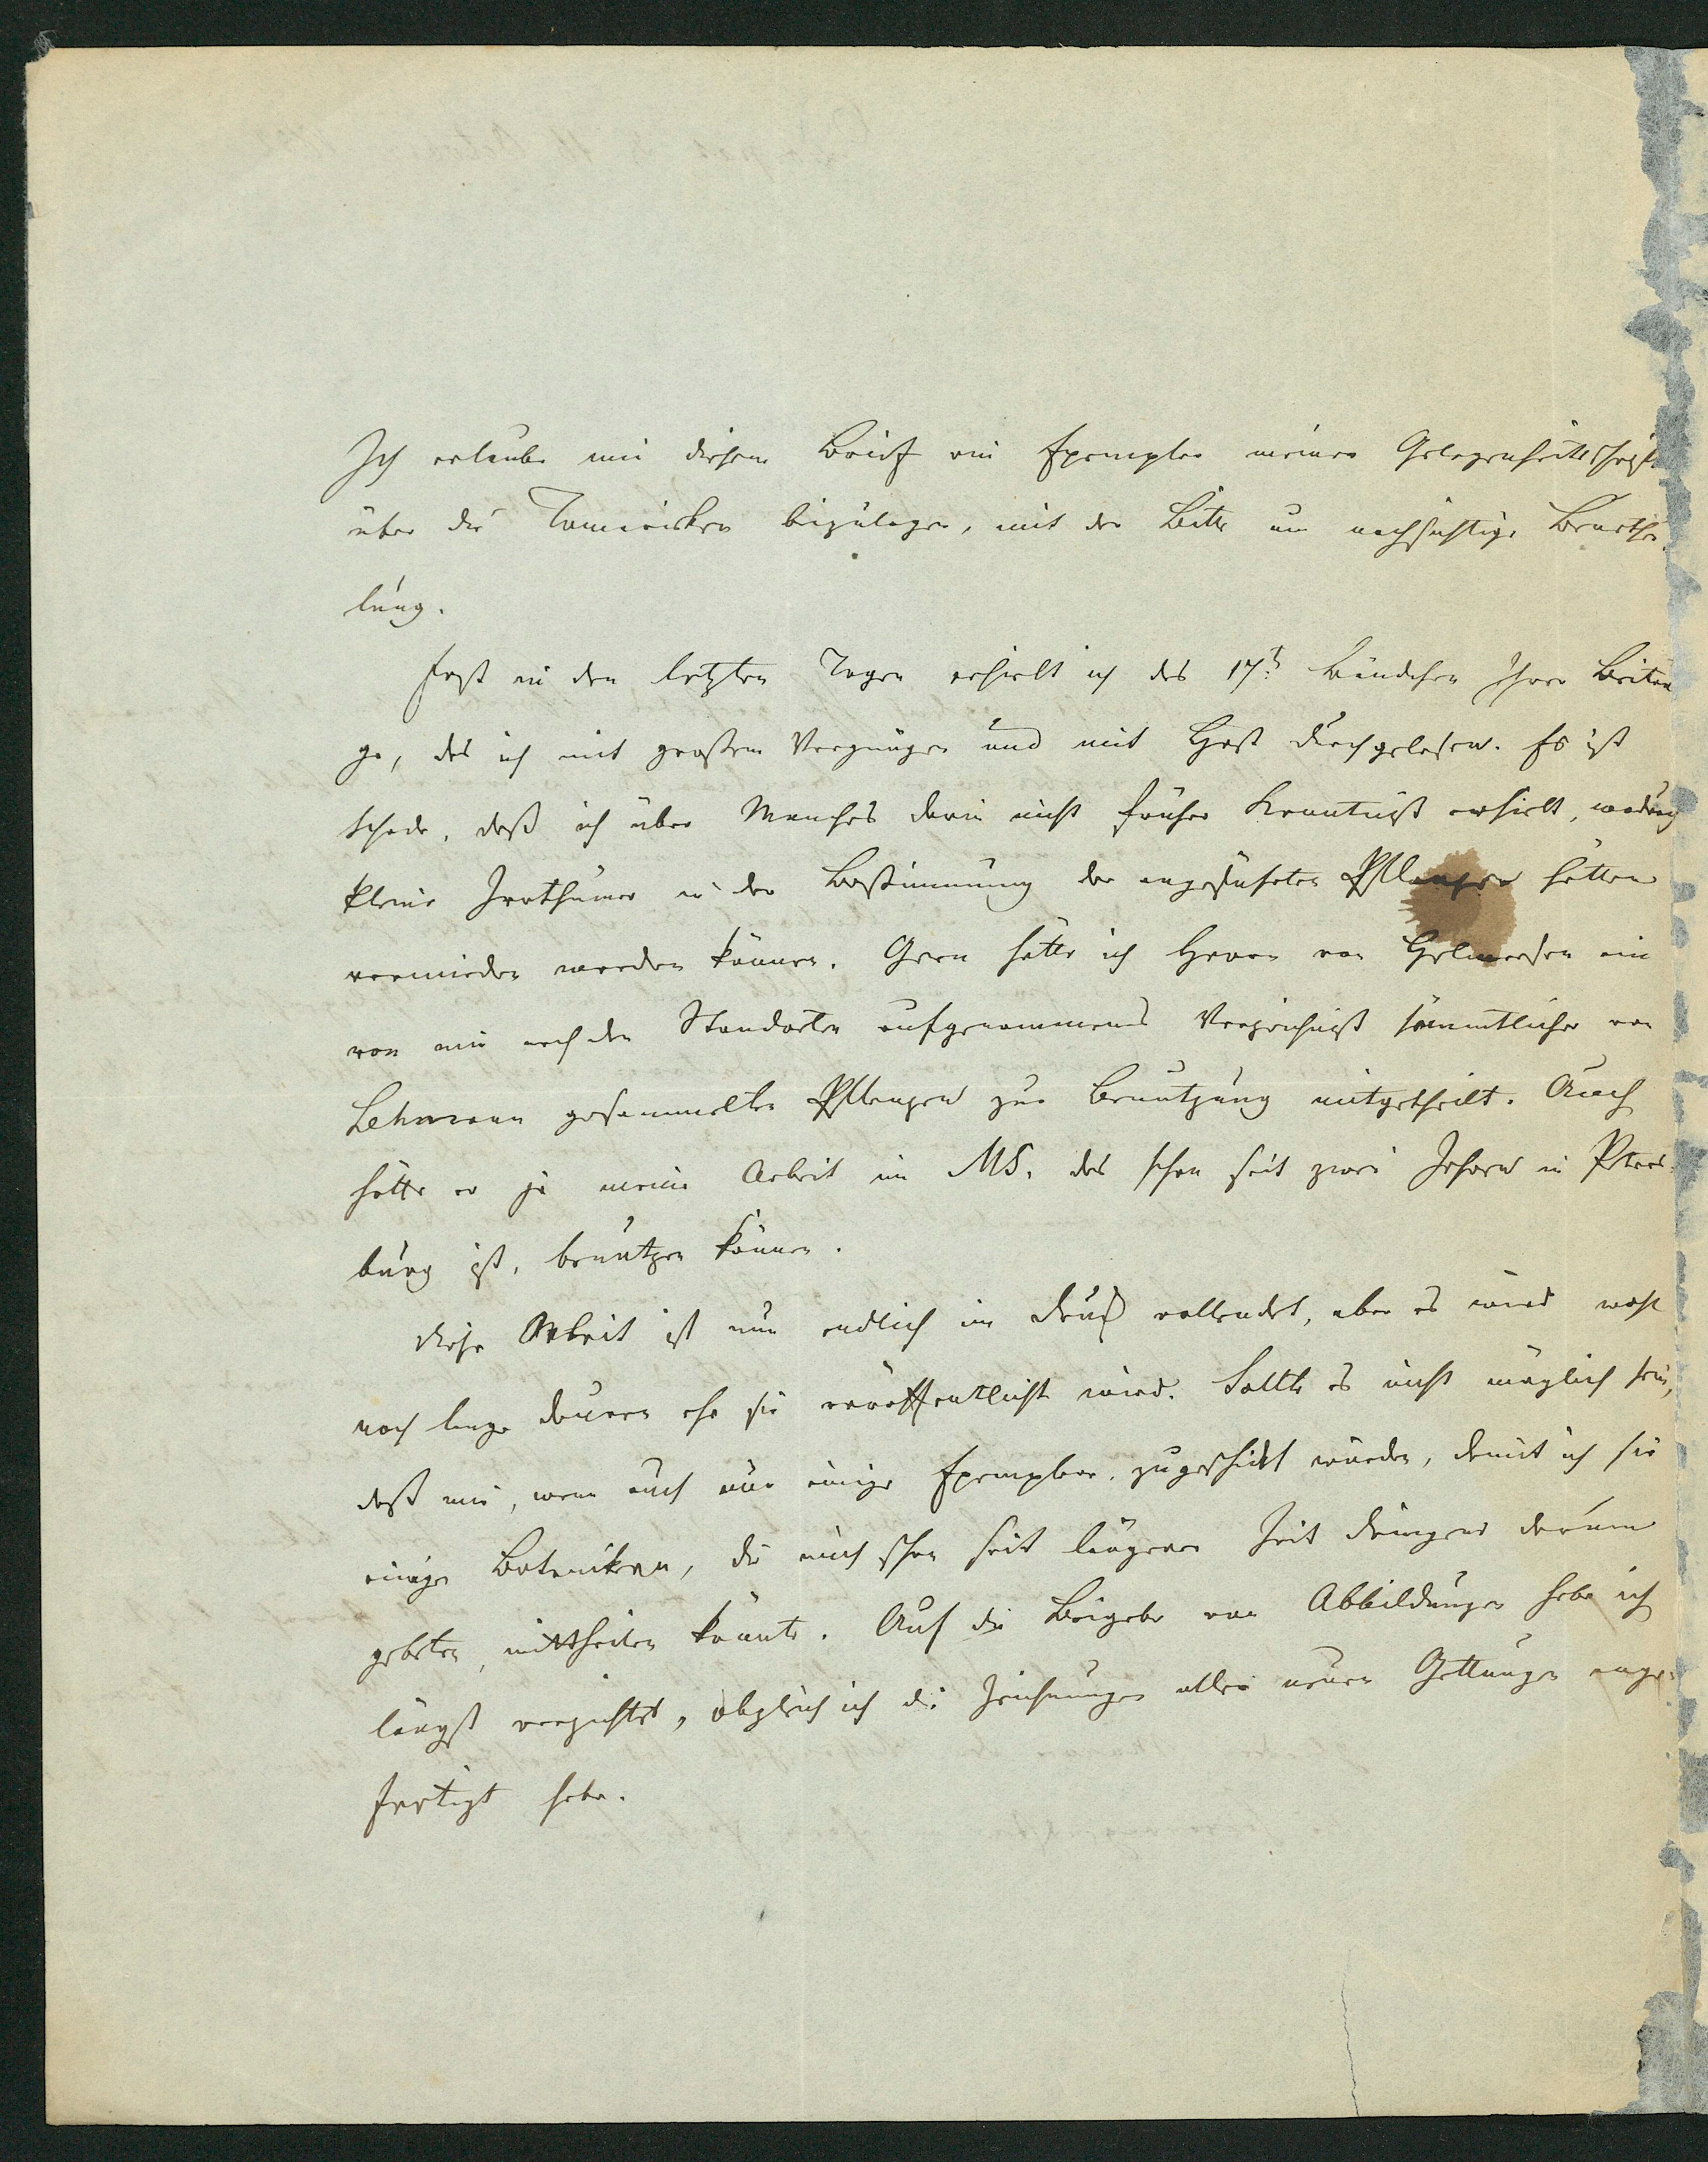 Ich erlaube mir diesem Brief ein Exemplar meiner Gelegenheitsschrift
über die Tamarisken beizulegen, mit der Bitte um nachsichtige Beurthei-
lung.
Erst in den letzten Tagen erhielt ich das 17t Bändchen Ihrer Beiträ
ge, das ich mit großem Vergnügen und mit Hast durchgelesen. Es ist
Schade, daß ich über Manches darin nicht früher Kenntniß erhielt, wodurch
kleine Irrthümer in der Bestimmung der angeführten Pflanzen hätten
vermieden werden können. Gern hätte ich Herrn von Helmersen ein
von mir nach den Standorten aufgenommenes Verzeichniß sämmtlicher von
Lehmann gesammelter Pflanzen zur Benutzung mitgetheilt. Auch
hätte er ja meine Arbeit im MS. das schon seit zwei Jahren in Peters-
burg ist, benutzen können.
Diese Arbeit ist nun endlich im Druck vollendet, aber es wird wohl
noch lange dauern ehe sie veröffentlicht wird. Sollte es nicht möglich sein,
daß mir, wenn auch nur einige Exemplare, zugeschickt würden, damit ich sie
einigen Botanikern, die mich schon seit längerer Zeit dringend darum
gebeten, mittheilen könnte. Auf die Beigabe von Abbildungen habe ich
längst verzichtet, obgleich ich die Zeichnungen aller neuen Gattungen ange-
fertigt habe.